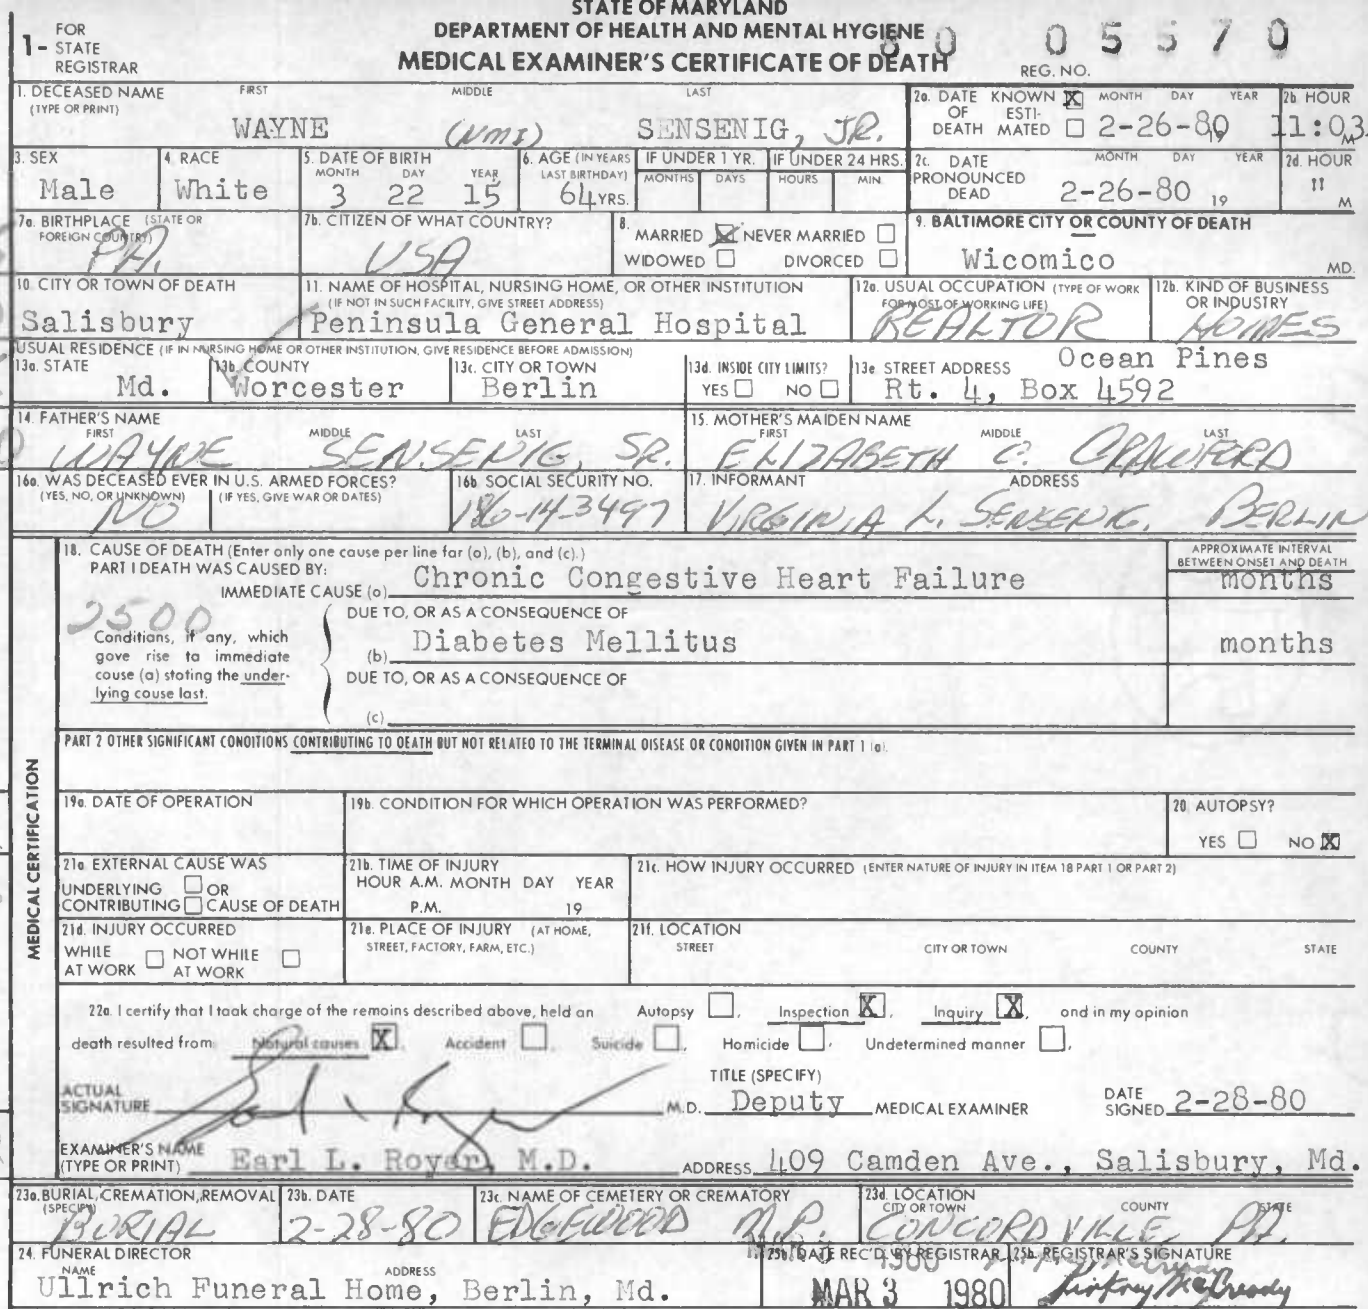 STATE OF MARYLAND
DEPARTMENT OF HEALTH AND MENTAL HYGIENE
MEDICAL EXAMINER'S CERTIFICATE OF DEATH
1- FOR STATE REGISTRAR
80 05570
REG. NO.
1. DECEASED NAME (TYPE OR PRINT) FIRST MIDDLE LAST
WAYNE (NMI) SENSENIG, JR.
2a. DATE OF DEATH KNOWN X ESTIMATED MONTH DAY YEAR
2-26-80
2b. HOUR
11:03 M
3. SEX
Male
4. RACE
White
5. DATE OF BIRTH MONTH DAY YEAR
3 22 15
6. AGE (IN YEARS LAST BIRTHDAY)
64 YRS.
IF UNDER 1 YR. MONTHS DAYS
IF UNDER 24 HRS. HOURS MIN.
2c. DATE PRONOUNCED DEAD MONTH DAY YEAR
2-26-80 19
2d. HOUR
" M
7a. BIRTHPLACE (STATE OR FOREIGN COUNTRY)
PA.
7b. CITIZEN OF WHAT COUNTRY?
USA
8. MARRIED X NEVER MARRIED
WIDOWED DIVORCED
9. BALTIMORE CITY OR COUNTY OF DEATH
Wicomico MD.
10. CITY OR TOWN OF DEATH
Salisbury
11. NAME OF HOSPITAL, NURSING HOME, OR OTHER INSTITUTION
(IF NOT IN SUCH FACILITY, GIVE STREET ADDRESS)
Peninsula General Hospital
12a. USUAL OCCUPATION (TYPE OF WORK FOR MOST OF WORKING LIFE)
REALTOR
12b. KIND OF BUSINESS OR INDUSTRY
HOMES
USUAL RESIDENCE (IF IN NURSING HOME OR OTHER INSTITUTION, GIVE RESIDENCE BEFORE ADMISSION)
13a. STATE
Md.
13b. COUNTY
Worcester
13c. CITY OR TOWN
Berlin
13d. INSIDE CITY LIMITS?
YES NO
13e. STREET ADDRESS
Ocean Pines
Rt. 4, Box 4592
14. FATHER'S NAME FIRST MIDDLE LAST
WAYNE SENSENIG, SR.
15. MOTHER'S MAIDEN NAME FIRST MIDDLE LAST
ELIZABETH C. CRAWFORD
16a. WAS DECEASED EVER IN U.S. ARMED FORCES?
(YES, NO, OR UNKNOWN) (IF YES, GIVE WAR OR DATES)
NO
16b. SOCIAL SECURITY NO.
186-14-3497
17. INFORMANT ADDRESS
VIRGINIA L. SENSENIG, BERLIN
MEDICAL CERTIFICATION
18. CAUSE OF DEATH (Enter only one cause per line for (a), (b), and (c).)
PART I DEATH WAS CAUSED BY:
APPROXIMATE INTERVAL BETWEEN ONSET AND DEATH
IMMEDIATE CAUSE (a) Chronic Congestive Heart Failure months
2500
Conditions, if any, which gave rise to immediate cause (a) stating the underlying cause last.
DUE TO, OR AS A CONSEQUENCE OF
(b) Diabetes Mellitus months
DUE TO, OR AS A CONSEQUENCE OF
(c)
PART 2 OTHER SIGNIFICANT CONDITIONS CONTRIBUTING TO DEATH BUT NOT RELATED TO THE TERMINAL DISEASE OR CONDITION GIVEN IN PART 1 (a).
19a. DATE OF OPERATION
19b. CONDITION FOR WHICH OPERATION WAS PERFORMED?
20. AUTOPSY?
YES NO X
21a. EXTERNAL CAUSE WAS
UNDERLYING OR
CONTRIBUTING CAUSE OF DEATH
21b. TIME OF INJURY
HOUR A.M. MONTH DAY YEAR
P.M. 19
21c. HOW INJURY OCCURRED (ENTER NATURE OF INJURY IN ITEM 18 PART 1 OR PART 2)
21d. INJURY OCCURRED
WHILE AT WORK NOT WHILE AT WORK
21e. PLACE OF INJURY (AT HOME, STREET, FACTORY, FARM, ETC.)
21f. LOCATION
STREET CITY OR TOWN COUNTY STATE
22a. I certify that I took charge of the remains described above, held an Autopsy , Inspection X, Inquiry X, and in my opinion
death resulted from: Natural causes X, Accident , Suicide , Homicide , Undetermined manner ,
ACTUAL SIGNATURE M.D.
TITLE (SPECIFY)
Deputy MEDICAL EXAMINER
DATE SIGNED 2-28-80
EXAMINER'S NAME (TYPE OR PRINT) Earl L. Royer, M.D.
ADDRESS 409 Camden Ave., Salisbury, Md.
23a. BURIAL, CREMATION, REMOVAL (SPECIFY)
BURIAL
23b. DATE
2-28-80
23c. NAME OF CEMETERY OR CREMATORY
EDGEWOOD M.P.
23d. LOCATION CITY OR TOWN COUNTY STATE
CONCORDVILLE, PA.
24. FUNERAL DIRECTOR
NAME ADDRESS
Ullrich Funeral Home, Berlin, Md.
25a. DATE REC'D. BY REGISTRAR
MAR 3 1980
25b. REGISTRAR'S SIGNATURE